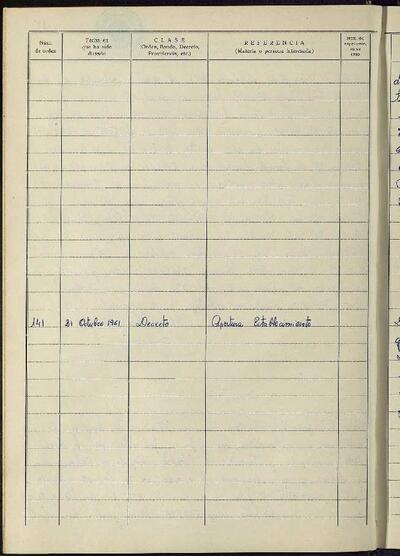 Núm. de orden
Fecha en que ha sido dictado
CLASE
(Orden, Bando, Decreto, Providencia, etc.)
REFERENCIA
(Materia o persona interesada)
Núm. de expediente,
141 21 Octubre 1961 Decreto Apertura Establecimiento